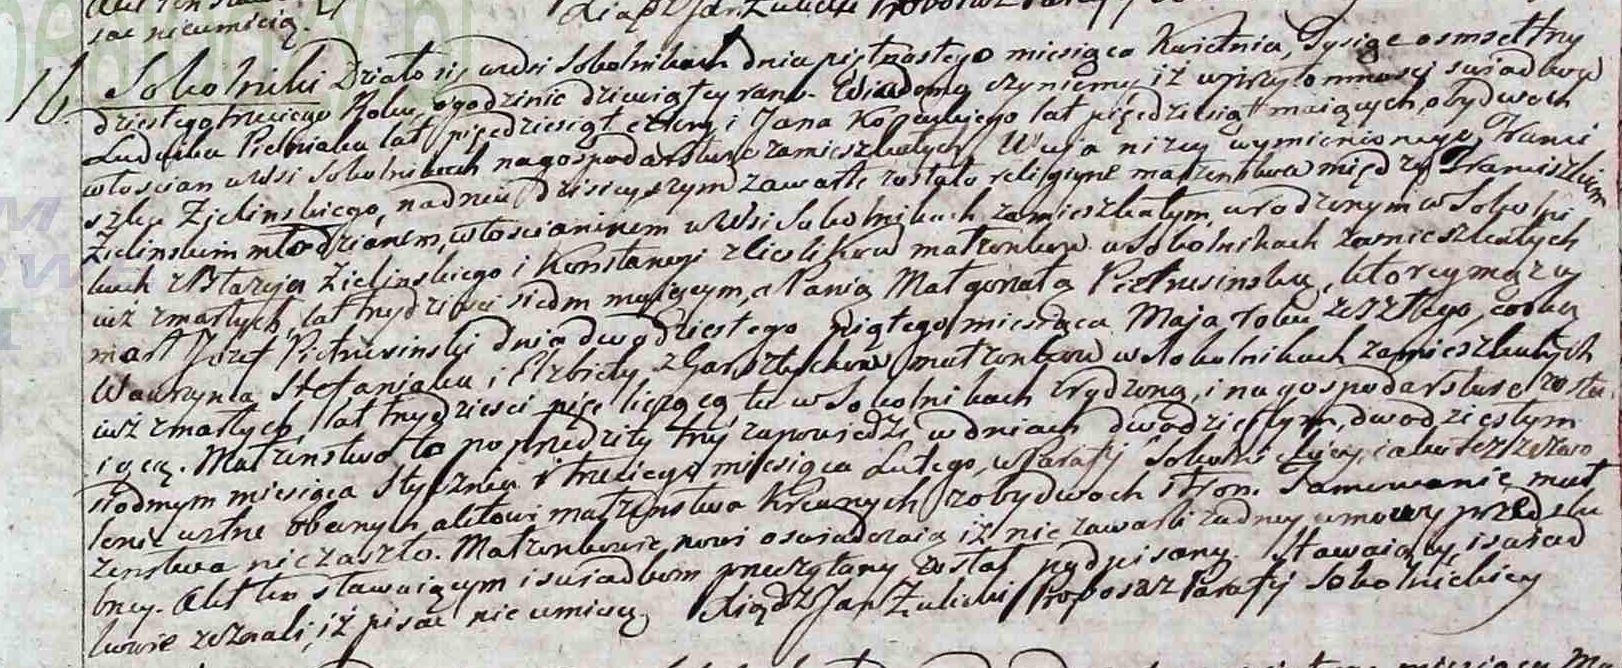 Akt ten
sać nieumieią.
Xiądz Jan Żulicki Proboszcz Parafij
16. Sobolniki Działo się wewsi Sobolnikach dnia piętnastego miesiąca Kwietnia, Tysiąc osmsetny
dziestego trzeciego Roku, ogodzinie dziewiątey rano. Wiadomo czyniemy, iż wprzytomnosci swiadkow
Ludwika Pietniaka lat pięcdziesiąt cztery i Jana Kopackiego lat pięcdziesiąt maiących, obydwoch
włoscian wWsi Sobolnikach nagospodarstwie zamieszkałych Wuja nizey wymienionego, Franci
szka Zielinskiego, nadniu dzisieyszym zawarte zostało religiyne małzenstwo między Franciszkiem
Zielinskim młodzianem, włoscianinem wWsi Sobolnikach zamieszkałym, urodzonym w Sobolni
kach z Błazeja Zielinskiego i Konstancyi z Cieslikow małzonkow w Sobolnikach zamieszkałych
iuż zmarłych, lat trzydziesci siedm maiącym, a Panią Małgorzatą Pietrusinską, ktorey mąz
zmarł Jozef Pietrusinski dnia dwudziestego piątego miesiąca Maja roku zeszłego, corką
Wawrzynca Stefaniaka i Elzbiety z małzonkow w Sobolnikach zamieszkałych
iuż zmarłych, lat trzydziesci pięc liczącą, tu w Sobolnikach zrodzoną, i na gospodarstwie zosta
iącą. Małzenstwo to poprzedziły trzy zapowiedzi w dniach dwudziestym, dwudziestym
siodmym miesiąca Stycznia i trzeciego miesiąca Lutego, w Parafij iako tez zezwo
lenie ustne obecnych aktowi małzenstwa Krewnych zobydwoch stron. Tamowanie mał
zenstwa nie zaszło. Małzonkowie nowi oswiadczaią iż nie zawarli zadney umowy przedslu
bney. Akt ten stawaiącym i swiadkom przeczytany został podpisany. Stawaiący i swiad
kowie zeznali, iż pisać nie umieią. Xiądz Jan Żulicki Proboszcz Parafij Sobolnickiey